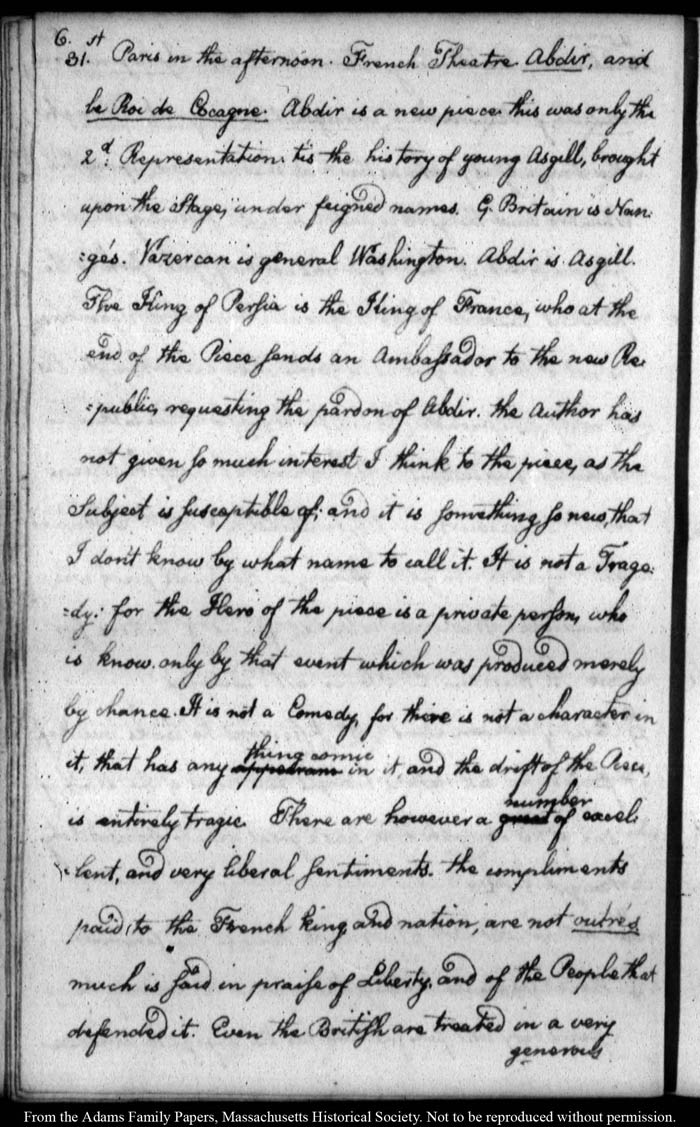 6.
31.st Paris in the afternoon. French Theatre. Abdir, and
le Roi de Cocagne. Abdir is a new piece. this was only the
2d: Representation. tis the history of young Asgill, brought
upon the Stage, under feigned names. G. Britain is Nan:
:gés. Vazercan is general Washington. Abdir is Asgill.
The King of Persia is the King of France, who at the
end of the Piece sends an Ambassador to the new Re:
:public, requesting the pardon of Abdir. the Author has
not given so much interest I think to the piece, as the
Subject is susceptible of; and it is something so new, that
I don't know by what name to call it. It is not a Trage:
:dy: for the Hero of the piece is a private person, who
is know only by that event which was produced merely
by chance. It is not a Comedy, for there is not a character in
it, that has any thing comic in it, and the drift of the Piece,
is entirely tragic. There are however a number of excel:
:lent, and very liberal sentiments. the compliments
paid, to the French king and nation, are not outrés
much is said in praise of Liberty, and of the People that
defended it. Even the British are treated in a very
generous
From the Adams Family Papers, Massachusetts Historical Society. Not to be reproduced without permission.